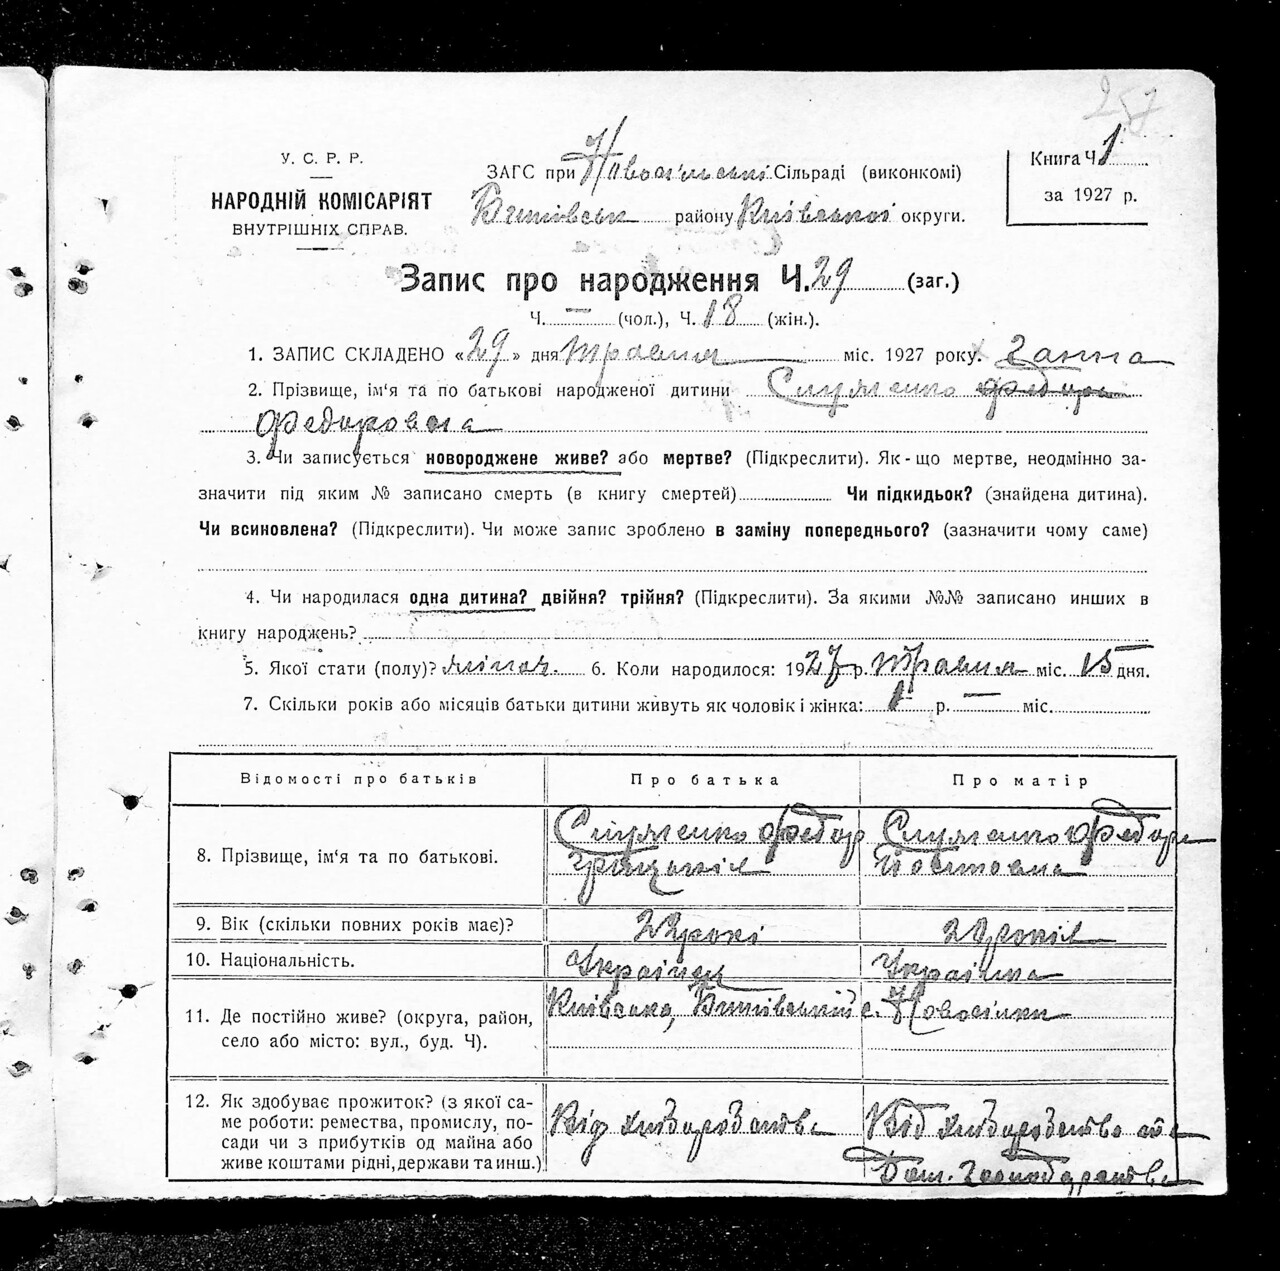 257
У. С. Р. Р.
НАРОДНІЙ КОМІСАРІЯТ
ВНУТРІШНІХ СПРАВ.
ЗАГС при Сільраді (виконкомі)
району Київської округи.
Книга Ч 1
за 1927 р.
Запис про народження Ч. 29 (заг.)
Ч. — (чол.), Ч. 18 (жін.).
1. ЗАПИС СКЛАДЕНО «29» дня Травня міс. 1927 року. Ганна
2. Прізвище, ім'я та по батькові народженої дитини
Федоровна
3. Чи записується новороджене живе? або мертве? (Підкреслити). Як-що мертве, неодмінно за-
значити під яким № записано смерть (в книгу смертей) Чи підкидьок? (знайдена дитина).
Чи всиновлена? (Підкреслити). Чи може запис зроблено в заміну попереднього? (зазначити чому саме)
4. Чи народилася одна дитина? двійня? трійня? (Підкреслити). За якими №№ записано инших в
книгу народжень?
5. Якої стати (полу)? жіноч. 6. Коли народилося: 1927 р. Травня міс. 15 дня.
7. Скільки років або місяців батьки дитини живуть як чоловік і жінка: 1 р. — міс.
Відомості про батьків Про батька Про матір
8. Прізвище, ім'я та по батькові.
Федор
9. Вік (скільки повних років має)? 22 рокі 20 років
10. Національність. Українец Українка
11. Де постійно живе? (округа, район,
село або місто: вул., буд. Ч).
Київська, с. Новосілки
12. Як здобуває прожиток? (з якої са-
ме роботи: ремества, промислу, по-
сади чи з прибутків од майна або
живе коштами рідні, держави та инш.)
Від хліборобства Від хліборобства та